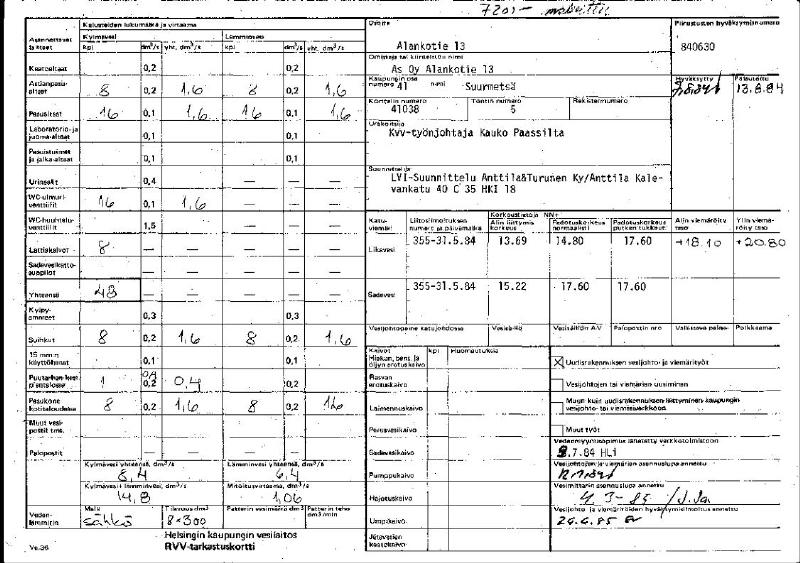 Kalusteiden lukumäärä ja virtaama
Osoite
Piirustusten hyväksymisnumero
Asennettavat laitteet
Kylmävesi
Lämminvesi
kpl dm³/s yht. dm³/s kpl dm³/s yht. dm³/s
Alankotie 13
840630
Keittoaltaat 0,2 — 0,2 —
Omistaja tai kiinteistön nimi
As Oy Alankotie 13
Astianpesualtaat 8 0,2 1,6 8 0,2 1,6
Kaupunginosa numero 41 nimi Suurmetsä
Hyväksytty
Palautettu
13.8.84
Pesualtaat 16 0,1 1,6 16 0,1 1,6
Korttelin numero 41038
Tontin numero 5
Rekisterinumero
Laboratorio- ja juoma-altaat 0,1 — 0,1 —
Urakoitsija
Kvv-työnjohtaja Kauko Paassilta
Pesuistuimet ja jalka-altaat 0,1 — 0,1 —
Suunnittelija
LVI-Suunnittelu Anttila&Turunen Ky/Anttila Kale-
vankatu 40 C 35 HKI 18
Urinaalit 0,4 —
WC-
venttiilit 16 0,1 1,6
WC-huuhteluventtiilit 1,5 —
Katuviemäri
Liitosilmoituksen numero ja päivämäärä
Korkeustietoja NN+
Alin liittymiskorkeus
Padotuskorkeus normaalisti
Padotuskorkeus putken tukkeut.
Alin viemäröity taso
Ylin viemäröity taso
Lattiakaivot 8 — — — — —
Likavesi 355-31.5.84 13.69 14.80 17.60 +18.10 +20.80
Yhteensä 48 — — — — —
Sadevesi 355-31.5.84 15.22 17.60 17.60
0,3 — 0,3 —
Vesijohtopaine katujohdossa
Suihkut 8 0,2 1,6 8 0,2 1,6
Palopostin nro
Poikkeama
15 mm:n käyttöhanat 0,1 — 0,1 —
Kaivot
kpl
Huomautuksia
Hiekan, bens. ja öljyn erotuskaivo
X Uudisrakennuksen vesijohto- ja viemärityöt
1 0,2 0,4
Rasvan erotuskaivo
Vesijohtojen tai viemärien uusiminen
Pesukone kotitaloudessa 8 0,2 1,6 8 0,2 1,6
Laimennuskaivo
Muun kuin uudisrakennuksen liittyminen kaupungin vesijohto- tai viemäriverkkoon
Muut vesipostit tms. — — — — —
Perusvesikaivo
Muut työt
Palopostit — — — — —
Sadevesikaivo
Vedenmyyntisopimus lähetetty verkkotoimistoon
.7.84 HLi
Kylmävesi yhteensä, dm³/s 8,4
Lämminvesi yhteensä, dm³/s 6,4
Pumppukaivo
Vesijohtojen ja viemärien asennuslupa annettu
Kylmävesi + lämminvesi, dm³/s 14,8
Mitoitusvirtaama, dm³/s 1,06
Hajotuskaivo
Vesimittarin asennuslupa annettu
4.3-85
Vedenlämmitin
Malli sähkö
Tilavuus dm³ 8×300
Patterin vesimäärä dm³
Patterin teho dm³/min
Umpikaivo
Jäteveden kokoojakaivo
Ve.36
Helsingin kaupungin vesilaitos
RVV-tarkastuskortti